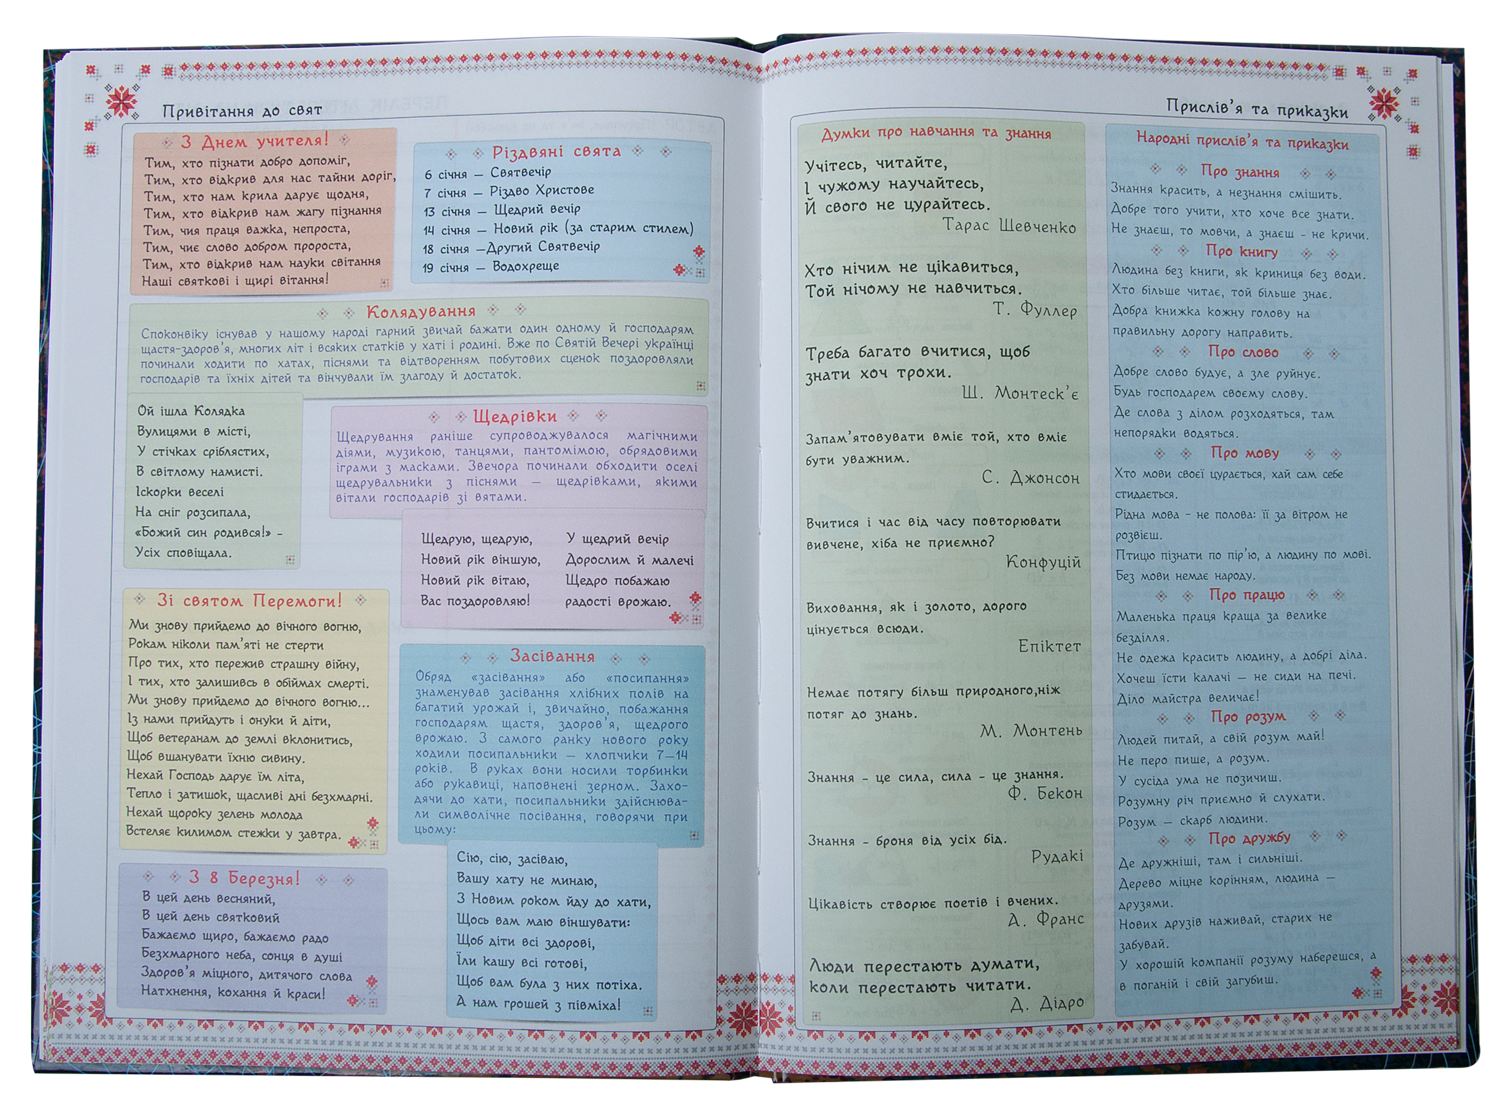 Привітання до свят
З Днем учителя!
Тим, хто пізнати добро допоміг,
Тим, хто відкрив для нас тайни доріг,
Тим, хто нам крила дарує щодня,
Тим, хто відкрив нам жагу пізнання
Тим, чия праця важка, непроста,
Тим, чиє слово добром пророста,
Тим, хто відкрив нам науки світання
Наші святкові і щирі вітання!
Різдвяні свята
6 січня – Святвечір
7 січня – Різдво Христове
13 січня – Щедрий вечір
14 січня – Новий рік (за старим стилем)
18 січня –Другий Святвечір
19 січня – Водохреще
Колядування
Споконвіку існував у нашому народі гарний звичай бажати один одному й господарям
щастя-здоров'я, многих літ і всяких статків у хаті і родині. Вже по Святій Вечері українці
починали ходити по хатах, піснями та відтворенням побутових сценок поздоровляли
господарів та їхніх дітей та вінчували їм злагоду й достаток.
Ой ішла Колядка
Вулицями в місті,
У стічках сріблястих,
В світлому намисті.
Іскорки веселі
На сніг розсипала,
«Божий син родився!» -
Усіх сповіщала.
Щедрівки
Щедрування раніше супроводжувалося магічними
діями, музикою, танцями, пантомімою, обрядовими
іграми з масками. Звечора починали обходити оселі
щедрувальники з піснями – щедрівками, якими
вітали господарів зі вятами.
Щедрую, щедрую,
Новий рік віншую,
Новий рік вітаю,
Вас поздоровляю!
У щедрий вечір
Дорослим й малечі
Щедро побажаю
радості врожаю.
Зі святом Перемоги!
Ми знову прийдемо до вічного вогню,
Рокам ніколи пам'яті не стерти
Про тих, хто пережив страшну війну,
І тих, хто залишивсь в обіймах смерті.
Ми знову прийдемо до вічного вогню...
Із нами прийдуть і онуки й діти,
Щоб ветеранам до землі вклонитись,
Щоб вшанувати їхню сивину.
Нехай Господь дарує їм літа,
Тепло і затишок, щасливі дні безхмарні.
Нехай щороку зелень молода
Встеляє килимом стежки у завтра.
Засівання
Обряд «засівання» або «посипання»
знаменував засівання хлібних полів на
багатий урожай і, звичайно, побажання
господарям щастя, здоров'я, щедрого
врожаю. З самого ранку нового року
ходили посипальники – хлопчики 7–14
років. В руках вони носили торбинки
або рукавиці, наповнені зерном. Захо-
дячи до хати, посипальники здійснюва-
ли символічне посівання, говорячи при
цьому:
Сію, сію, засіваю,
Вашу хату не минаю,
З Новим роком йду до хати,
Щось вам маю віншувати:
Щоб діти всі здорові,
Їли кашу всі готові,
Щоб вам була з них потіха.
А нам грошей з півміха!
З 8 Березня!
В цей день весняний,
В цей день святковий
Бажаємо щиро, бажаємо радо
Безхмарного неба, сонця в душі
Здоров'я міцного, дитячого слова
Натхнення, кохання й краси!
Прислів'я та приказки
Думки про навчання та знання
Учітесь, читайте,
І чужому научайтесь,
Й свого не цурайтесь.
Тарас Шевченко
Хто нічим не цікавиться,
Той нічому не навчиться.
Т. Фуллер
Треба багато вчитися, щоб
знати хоч трохи.
Ш. Монтеск'є
Запам'ятовувати вміє той, хто вміє
бути уважним.
С. Джонсон
Вчитися і час від часу повторювати
вивчене, хіба не приємно?
Конфуцій
Виховання, як і золото, дорого
цінується всюди.
Епіктет
Немає потягу більш природного,ніж
потяг до знань.
М. Монтень
Знання - це сила, сила - це знання.
Ф. Бекон
Знання - броня від усіх бід.
Рудакі
Цікавість створює поетів і вчених.
А. Франс
Люди перестають думати,
коли перестають читати.
Д. Дідро
Народні прислів'я та приказки
Про знання
Знання красить, а незнання смішить.
Добре того учити, хто хоче все знати.
Не знаєш, то мовчи, а знаєш - не кричи.
Про книгу
Людина без книги, як криниця без води.
Хто більше читає, той більше знає.
Добра книжка кожну голову на
правильну дорогу направить.
Про слово
Добре слово будує, а зле руйнує.
Будь господарем своєму слову.
Де слова з ділом розходяться, там
непорядки водяться.
Про мову
Хто мови своєї цурається, хай сам себе
стидається.
Рідна мова - не полова: її за вітром не
розвієш.
Птицю пізнати по пір'ю, а людину по мові.
Без мови немає народу.
Про працю
Маленька праця краща за велике
безділля.
Не одежа красить людину, а добрі діла.
Хочеш їсти калачі – не сиди на печі.
Діло майстра величає!
Про розум
Людей питай, а свій розум май!
Не перо пише, а розум.
У сусіда ума не позичиш.
Розумну річ приємно й слухати.
Розум – скарб людини.
Про дружбу
Де дружніші, там і сильніші.
Дерево міцне корінням, людина –
друзями.
Нових друзів наживай, старих не
забувай.
У хорошій компанії розуму наберешся, а
в поганій і свій загубиш.